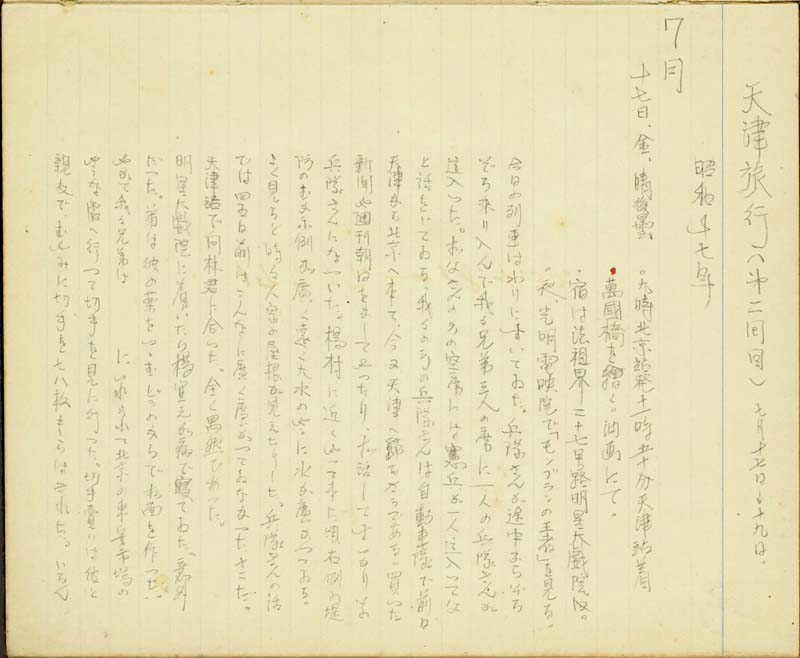 天津旅行(第二回目) 七月十七日→十九日。
昭和十七年
7月
十七日、金、晴後曇、
。九時北京站発十一時五十分天津站着
・萬國橋を描く。油画にて。
・宿は法祖界二十七号路明星大戲院内。
。夜、光明電映院で「モンブランの王者」を見る。
今日の列車はわりにすいてゐた。兵隊さんが途中からぞろ
ぞろ乗り入んで我々兄弟三人の席に一人の兵隊さんが
這入った。お父さんの方の空席には憲兵が一人這入ってな
と話をしてゐる。我々の方の兵隊さんは自動車隊で前は
天津から北京へ来て、今又天津へ帰るさうである。買った
新聞や週刊朝日をかして上ったり、お話してすっかり
兵隊さんになついた。楊村に近くやって来た頃右側の堤
防のむかふ側が廣く遠く大水のやうに水が廣がってゐる。
よく見ると時々人家の屋根が見えたりした。兵隊さんの話
では四五日前はこんなに廣く廣がってゐなかったさうだ。
天津站で向林君に会った。全く偶然であった。
明星大戲院に着いたら楊宣元が病で寝てゐた。意外
だった。弟は彼の薬をつゝむ
やがて我々兄弟は に、いれられて北京の東安市場の
やうな處へ行って切手を見に行った。切手賣りは彼と
親友でむやみに切手を七八枚もらはされた。いろん